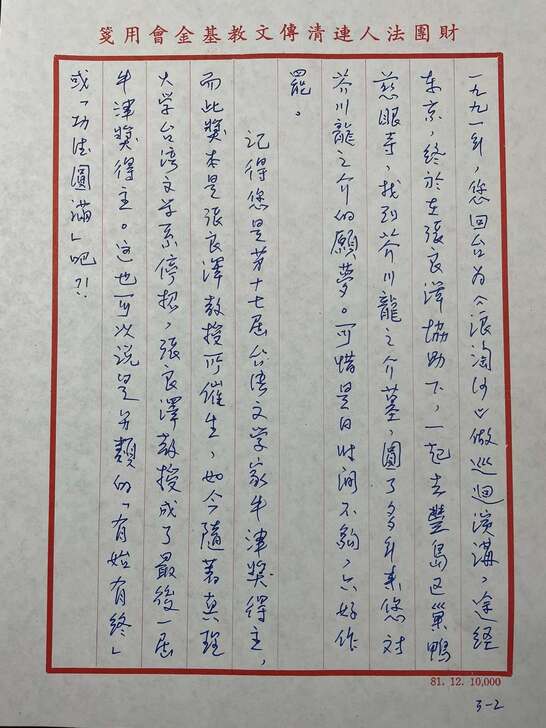 財團法人連清傳文教基金會用箋
一九九一年,您回台为《浪淘沙》做巡迴演講,途経
东京,終於在張良澤協助下,一起去豐島区巢鴨
慈眼寺,找到芥川龍之介墓,圓了多年来您对
芥川龍之介的願夢。可惜是日时间不夠,只好作
罷。
記得您是第十七屆台湾文学家牛津獎得主,
而此獎本是張良澤教授所催生,如今隨着真理
大学台湾文学系停招,張良澤教授成了最後一屆
牛津獎得主。这也可以说是另類的「有始有终」
或「功德圓滿」吧?!
81. 12. 10,000
3-2